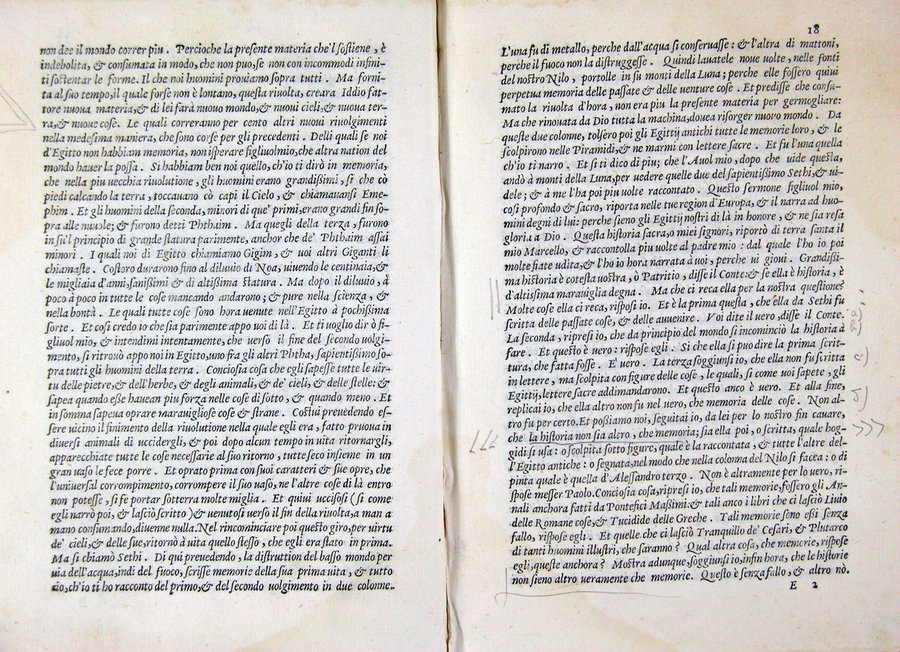 non dee il mondo correr piu . Percioche la presente materia che'l sostiene , è
indebolita, & consumata in modo, che non puo, se non con incommodi infini-
ti sostentar le forme. Il che noi huomini prouiamo sopra tutti . Ma forni-
ta al suo tempo, il quale forse non è lontano, questa riuolta, creara Iddio fat-
tore nuoua materia, & di lei farà nuouo mondo, & nuoui cieli, & nuoua ter-
ra, & nuoue cose. Le quali correranno per cento altri nuoui riuolgimenti
nella medesima maniera, che sono corse per gli precedenti . Delli quali se noi
d'Egitto non habbiam memoria, non isperare figliuol mio, che altra nation del
mondo hauer la possa . Si habbiam ben noi quello, ch'io ti dirò in memoria,
che nella piu uecchia riuolutione , gli huomini erano grandissimi , sì che cò
piedi calcando la terra , toccauano cò capi il Cielo , & chiamauansi Eme-
phim . Et gli huomini della seconda, minori di que' primi, erano grandi fin so-
pra alle nuuole ; & furono detti Phthaim . Ma quegli della terza , furono
in su'l principio di grande statura parimente, anchor che de' Phthaim assai
minori . I quali noi di Egitto chiamiamo Gigim , & uoi altri Giganti li
chiamaste . Costoro durarono fino al diluuio di Noa, uiuendo le centinaia, &
le migliaia d'anni, sanissimi & di altissima statura . Ma dopo il diluuio , à
poco à poco in tutte le cose mancando andarono ; & pure nella scienza , &
nella bontà . Le quali tutte cose sono hora uenute nell'Egitto à pochissima
sorte . Et così credo io che sia parimente appo uoi di là . Et ti uoglio dir ò fi-
gliuol mio , & intendimi intentamente, che uerso il fine del secondo uolgi-
mento, si ritrouò appo noi in Egitto, uno fra gli altri Phtha, sapientissimo so-
pra tutti gli huomini della terra . Conciosia cosa che egli sapesse tutte le uir-
tu delle pietre, & dell'herbe, & degli animali, & de' cieli, & delle stelle: &
sapea quando esse hauean piu forza nelle cose di sotto , & quando meno . Et
in somma sapeua oprare marauigliose cose & strane . Costui preuedendo es-
sere uicino il finimento della riuolutione nella quale egli era , fatto pruoua in
diuersi animali di uccidergli, & poi dopo alcun tempo in uita ritornargli,
apparecchiate tutte le cose necessarie al suo ritorno , tutte seco insieme in un
gran uaso le fece porre . Et oprato prima con suoi caratteri & sue opre, che
l'uniuersal corrompimento, corrompere il suo uaso, ne l'altre cose di là entro
non potesse , si fe portar sotterra molte miglia . Et quiui uccisosi (si come
egli narrò poi, & lasciò scritto) & uenutosi uerso il fin della riuolta, a man a
mano consumando, diuenne nulla. Nel rincominciare poi questo giro, per uirtu
de' cieli, & delle sue, ritornò à uita quello stesso , che egli era stato in prima.
Ma si chiamò Sethi . Di qui preuedendo , la distrution del basso mondo per
uia dell'acqua, indi del fuoco, scrisse memorie della sua prima uita , & tutto
ciò, ch'io ti ho racconto del primo, & del secondo uolgimento in due colonne.
18
L'una fu di metallo, perche dall'acqua si conseruasse: & l'altra di mattoni,
perche il fuoco non la distruggesse . Quindi lauatele noue uolte , nelle fonti
del nostro Nilo , portolle in su monti della Luna ; perche elle fossero quiui
perpetua memoria delle passate & delle uenture cose . Et predisse che consu-
mato la riuolta d'hora , non era piu la presente materia per germogliare:
Ma che rinouata da Dio tutta la machina, douea risorger nuouo mondo . Da
queste due colonne, tolsero poi gli Egittij antichi tutte le memorie loro , & le
scolpirono nelle Piramidi, & ne marmi con lettere sacre . Et fu l'una quella
ch'io ti narro . Et si ti dico di piu ; che l'Auol mio , dopo che uide questa,
andò à monti della Luna, per uedere quelle due del sapientissimo Sethi, & ui-
dele ; & à me l'ha poi piu uolte raccontato . Questo sermone figliuol mio,
così profondo & sacro, riporta nelle tue region d'Europa, & il narra ad huo-
mini degni di lui: perche sieno gli Egittij nostri di là in honore , & ne sia resa
gloria a Dio . Questa historia sacra, o miei signori, riportò di terra santa il
mio Marcello, & raccontolla piu uolte al padre mio : dal quale l'ho io poi
molte fiate udita, & l'ho io hora narrata à uoi , perche ui gioui . Grandissi-
ma historia è cotesta uostra , ò Patritio , disse il Conte: & se ella è historia , è
d'altissima marauiglia degna . Ma che ci reca ella per la nostra questione?
Molte cose ella ci reca, risposi io . Et è la prima questa , che ella da Sethi fu
scritta delle passate cose, & delle auuenire . Voi dite il uero, disse il Conte.
La seconda , ripresi io, che da principio del mondo si incominciò la historia à
fare . Et questo è uero: rispose egli . Si che ella si puo dire la prima scrit-
tura, che fatta fosse . E' uero . La terza soggiunsi io, che ella non fu scritta
in lettere , ma scolpita con figure delle cose , le quali, si come uoi sapete , gli
Egittij, lettere sacre addimandarono. Et questo anco è uero. Et alla fine,
replicai io, che ella altro non fu nel uero, che memoria delle cose . Non al-
tro fu per certo. Et possiamo noi, seguitai io , da lei per lo nostro fin cauare,
che la historia non sia altro , che memoria; sia ella poi , o scritta, quale hog-
gidi si usa : o scolpita sotto figure , quale è la raccontata , & tutte l'altre del-
l'Egitto antiche : o segnata, nel modo che nella colonna del Nilo si facea : o di
pinta quale è quella d'Alessandro terzo . Non è altramente per lo uero, ri-
spose messer Paolo. Conciosia cosa, ripresi io, che tali memorie, fossero gli An-
nali anchora fatti da Pontefici Massimi: & tali anco i libri che ci lasciò Liuio
delle Romane cose, & Tucidide delle Greche . Tali memorie sono essi senza
fallo, rispose egli . Et quelle che ci lasciò Tranquillo de' Cesari, & Plutarco
di tanti huomini illustri, che saranno ? Qual altra cosa, che memorie, rispose
egli, queste anchora ? Mostra adunque, soggiunsi io, infin hora, che le historie
non sieno altro ueramente che memorie. Questo è senza fallo , & altro nò.
E 2